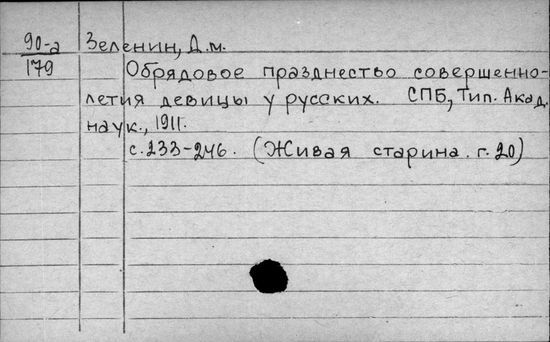 90-а Зеленин, Д.м.
179 Обрядовое празднество совершенно-
летия девицы у русских. СПБ, Тип. Акад.
наук., 1911.
с. 233-246. (Живая старина. г. 20)